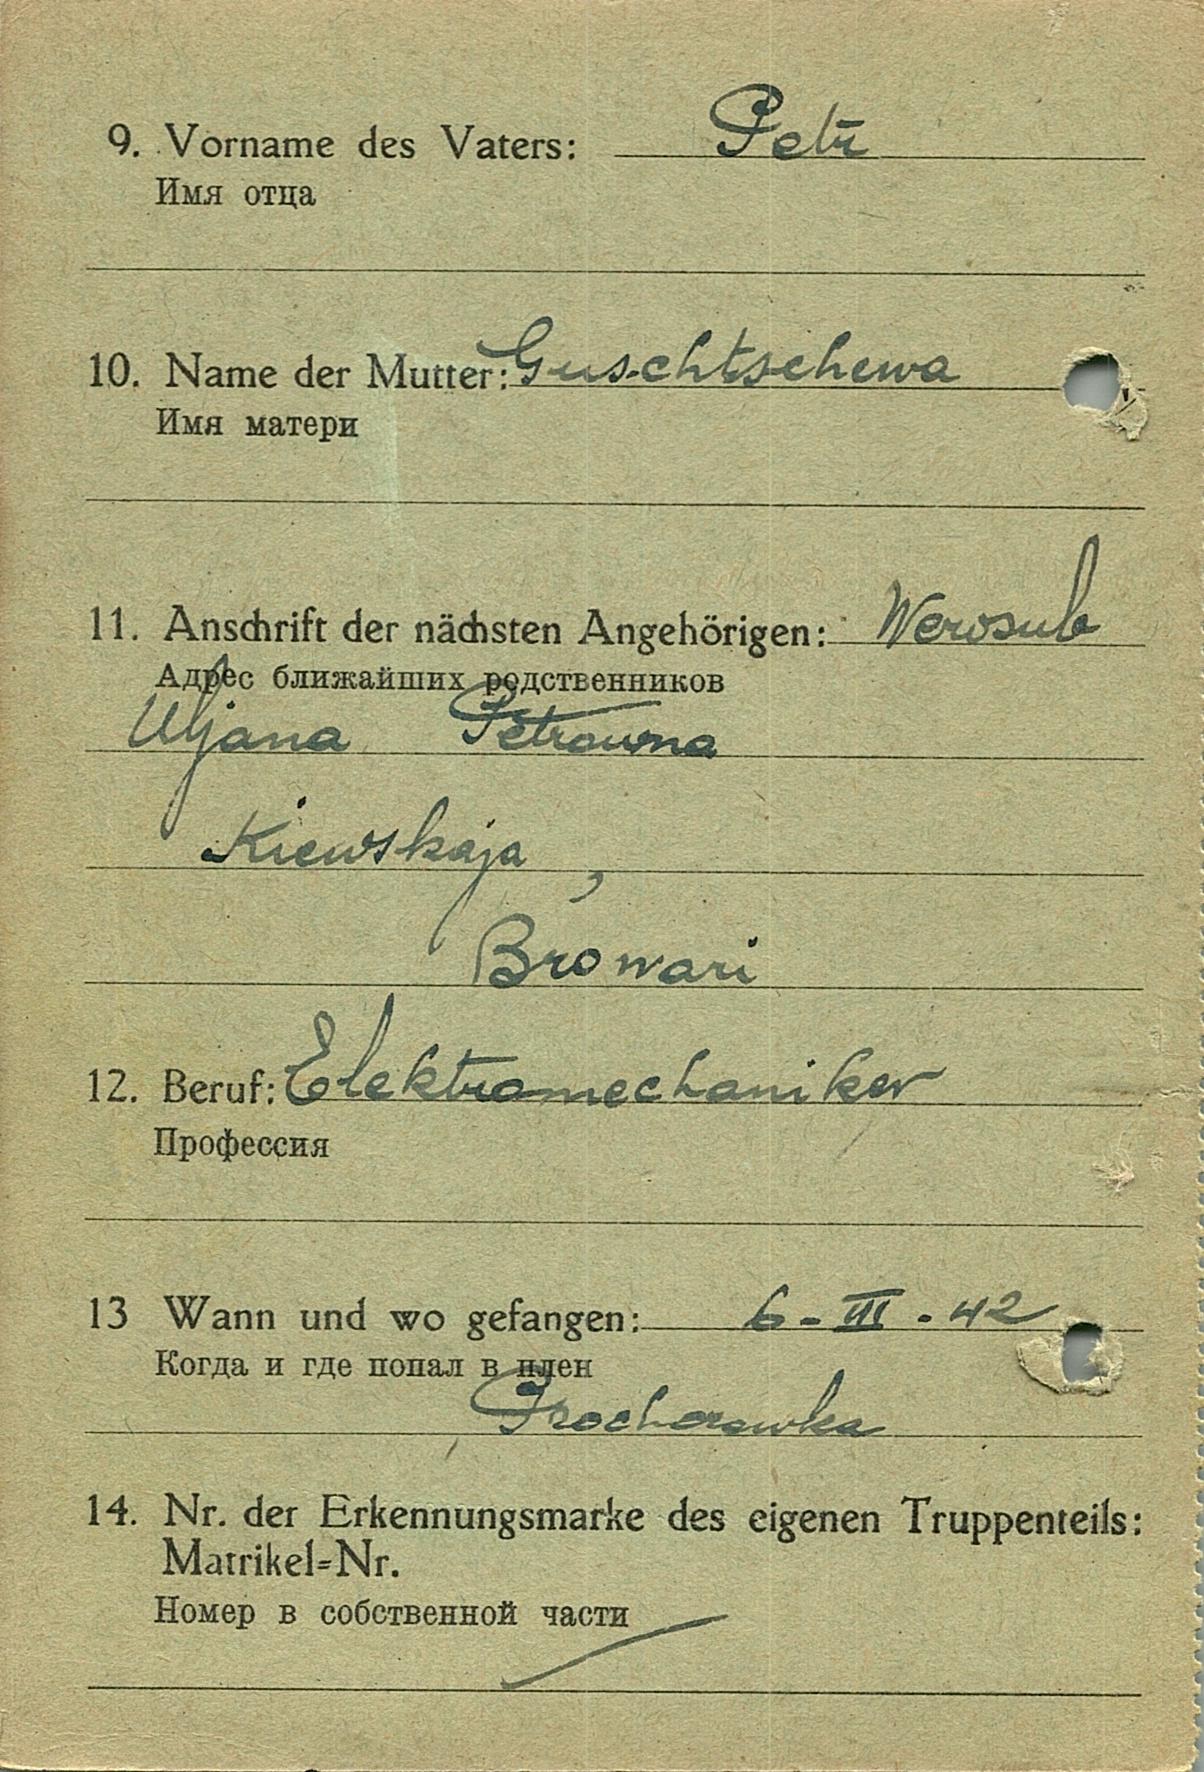 9. Vorname des Vaters: Petr
Имя отца
10. Name der Mutter: Guschtschewa
Имя матери
11. Anschrift der nächsten Angehörigen: Werosub
Адрес ближайших родственников
Uljana Petrowna
Kiewskaja,
Browari
12. Beruf: Elektromechaniker
Профессия
13 Wann und wo gefangen: 6-III-42
Когда и где попал в плен
Prochorowka
14. Nr. der Erkennungsmarke des eigenen Truppenteils:
Matrikel=Nr.
Номер в собственной части